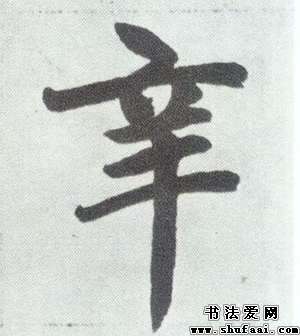 辛
书法爱网
www.shufaai.com